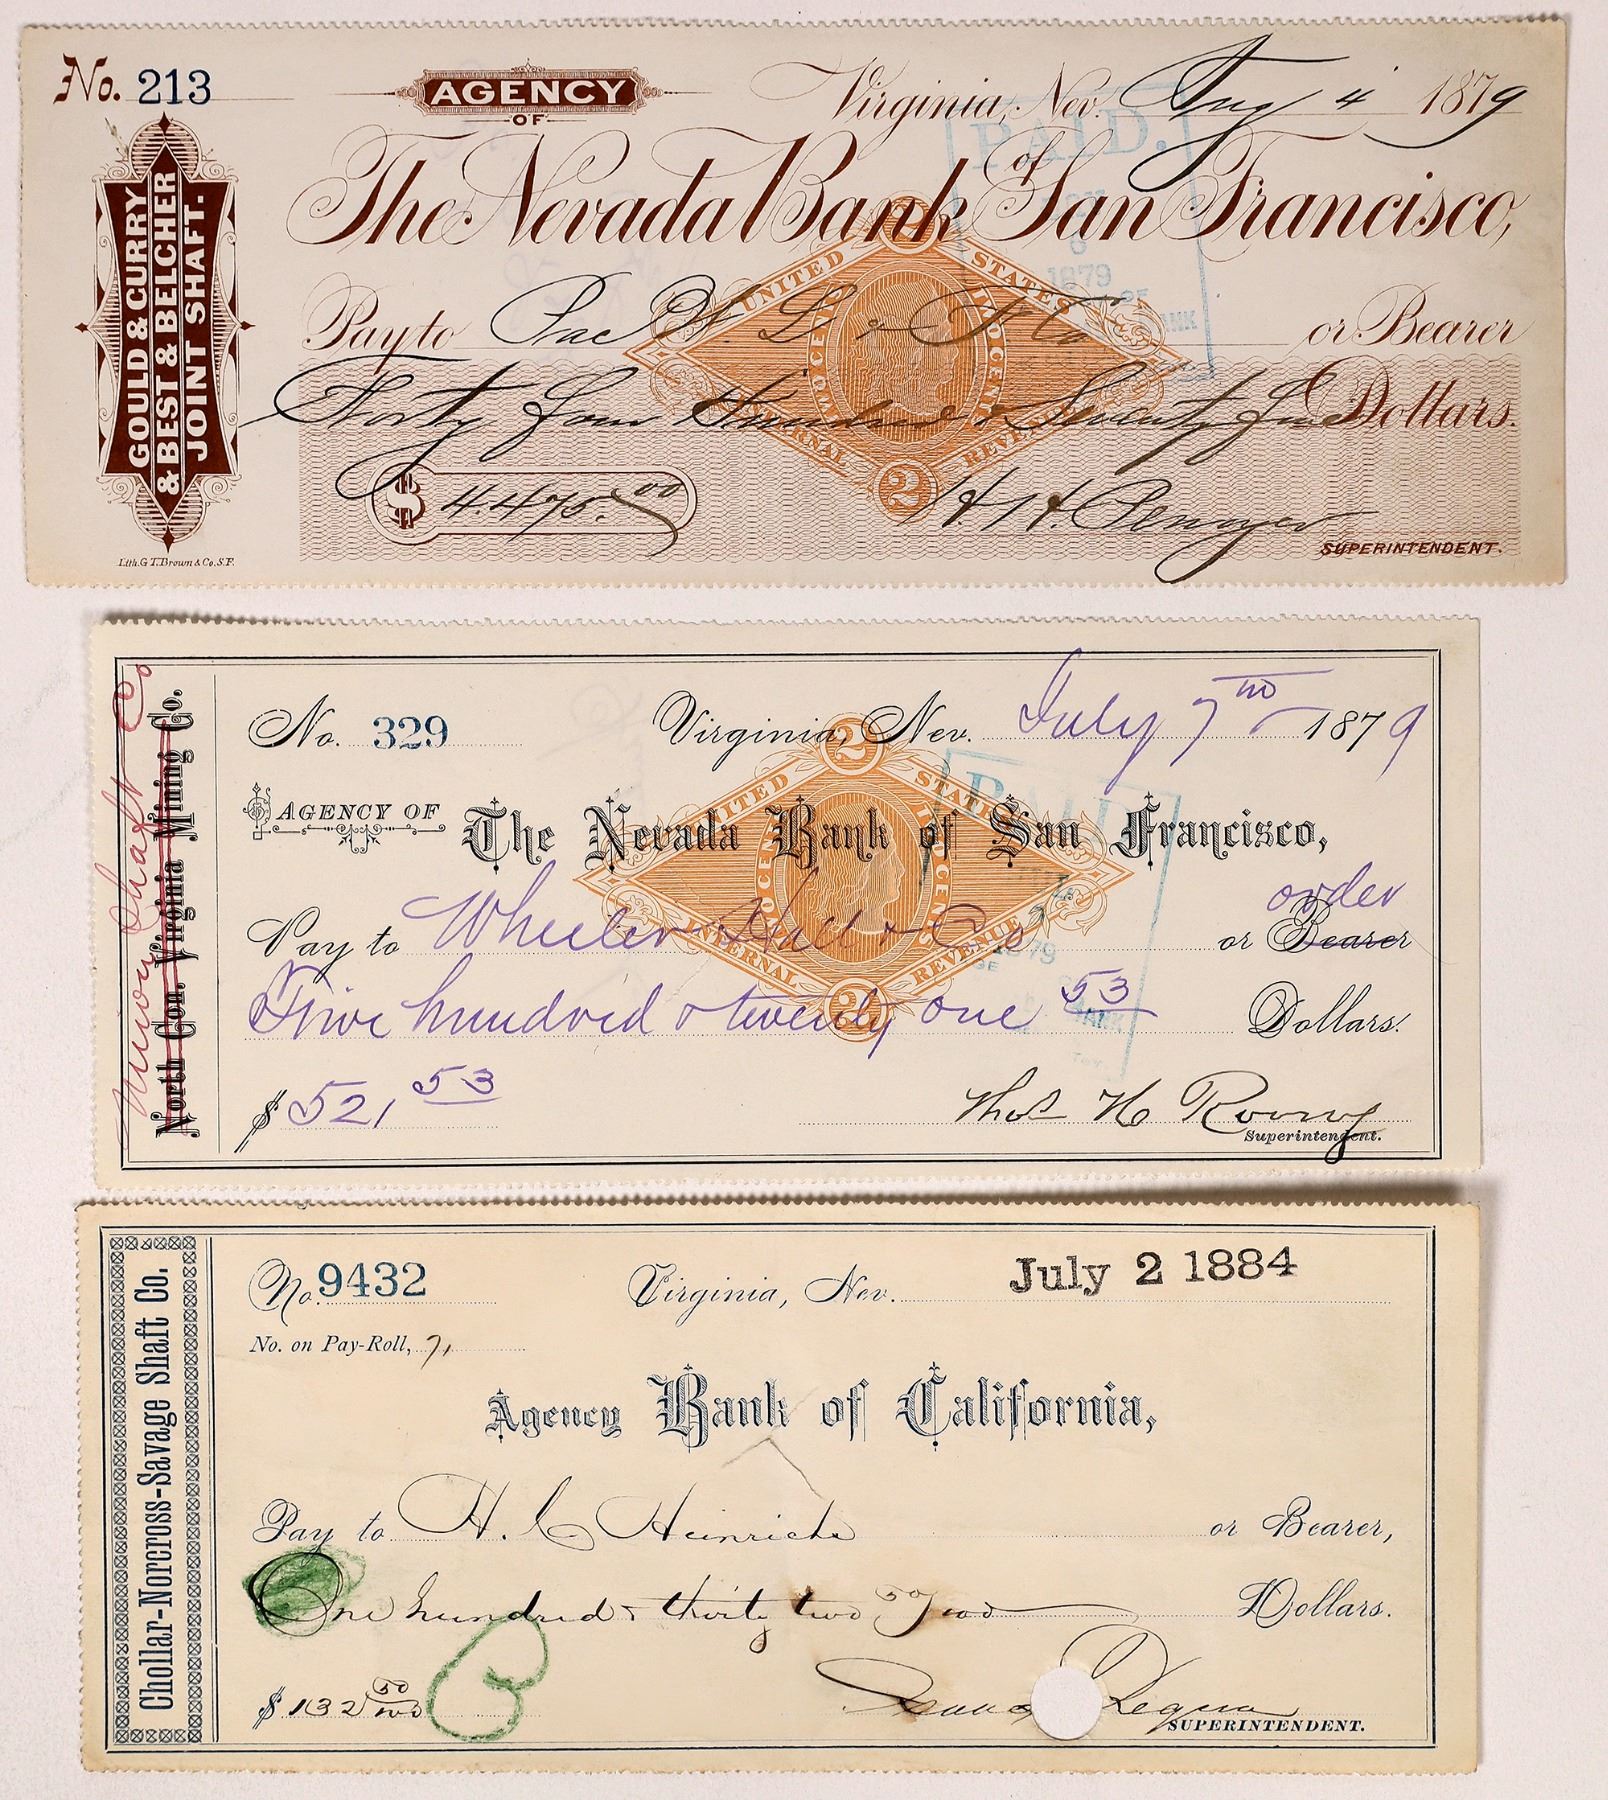 No. 213
AGENCY
OF
Virginia, Nev. Aug 4 1879
The Nevada Bank of San Francisco,
GOULD & CURRY
& BEST & BELCHER
JOINT SHAFT.
PAID.
6
1879
Pay to Pac W. L & F Co or Bearer
UNITED STATES
INTERNAL REVENUE
TWO CENTS
TWO CENTS
Forty four Hundred & Seventy five Dollars.
$ 4.475.00
2
H. H. Penoyer
SUPERINTENDENT.
Lith. G. T. Brown & Co. S. F.
Union Shaft Co
North Con. Virginia Mining Co.
No. 329
Virginia, Nev. July 7th 1879
2
AGENCY OF The Nevada Bank of San Francisco,
PAID
UNITED STATES
INTERNAL REVENUE
TWO CENTS
TWO CENTS
order
Pay to Wheeler Hall & Co or Bearer
Five hundred & twenty one 53 Dollars.
2
$ 521 53
Thos H
Superintendent.
Chollar-Norcross-Savage Shaft Co.
No. 9432
Virginia, Nev. July 2 1884
No. on Pay-Roll, 71
Agency Bank of California,
Pay to H. C Heinrichs or Bearer,
One hundred & thirty two 50/100 Dollars.
$ 132 50/100
Isaac Requa
SUPERINTENDENT.